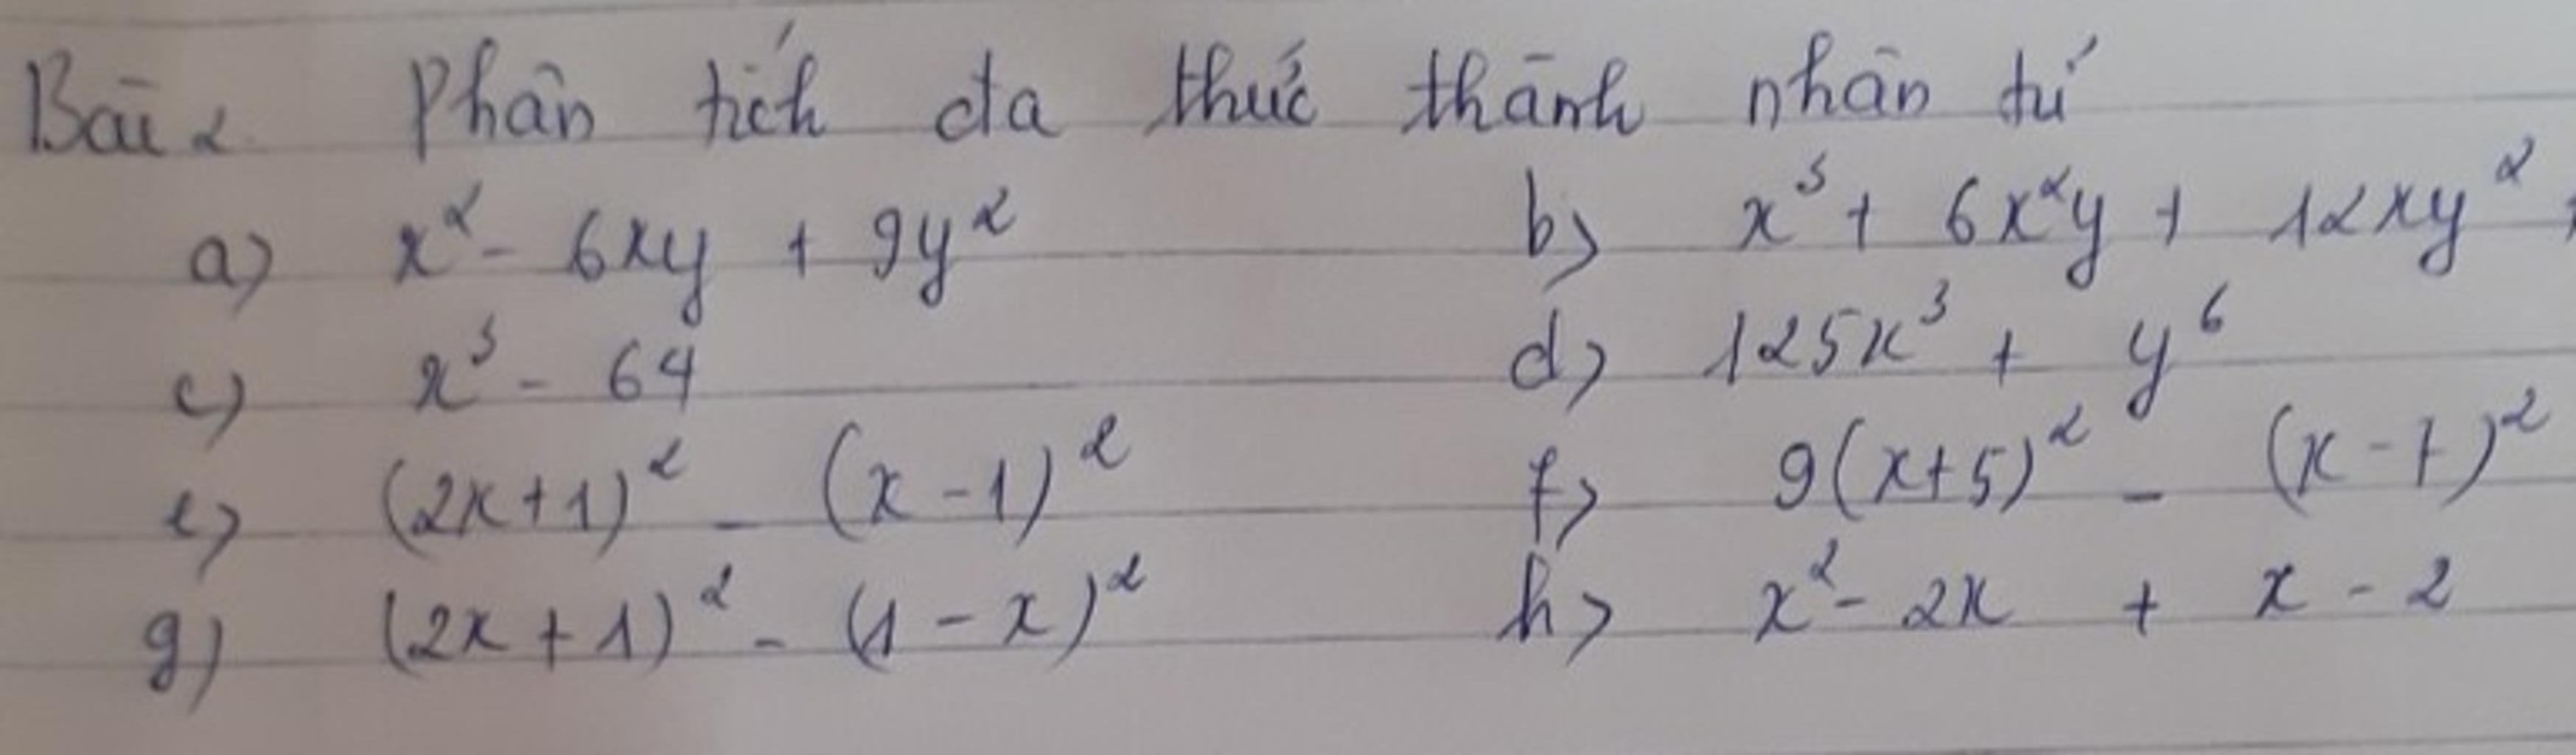 Bài 2. Phân tích đa thức thành nhân tử
a) x² - 6xy + 9y² b) x³ + 6x²y + 12xy² +
c) x³ - 64 d) 125x³ + y⁶
e) (2x+1)² - (x-1)² f) 9(x+5)² - (x-7)²
g) (2x+1)² - (1-x)² h) x² - 2x + x - 2